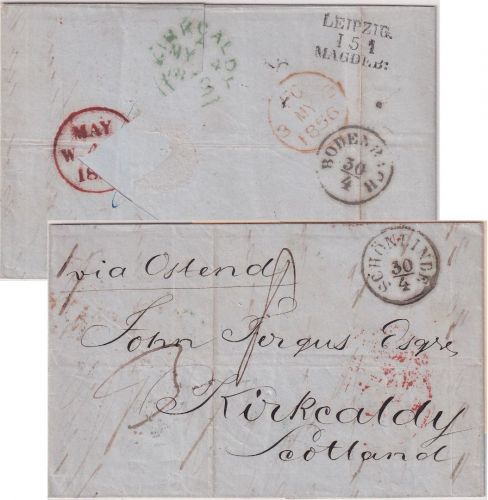 KIRKCALDY
MY
LEIPZIG.
I 5 1
MAGDEB:
MY
1856
MAY
W
18
BODENBACH
30
4
via Ostend
SCHÖNLINDE
30
4
John Fergus Esqre
Kirkcaldy
Scotland